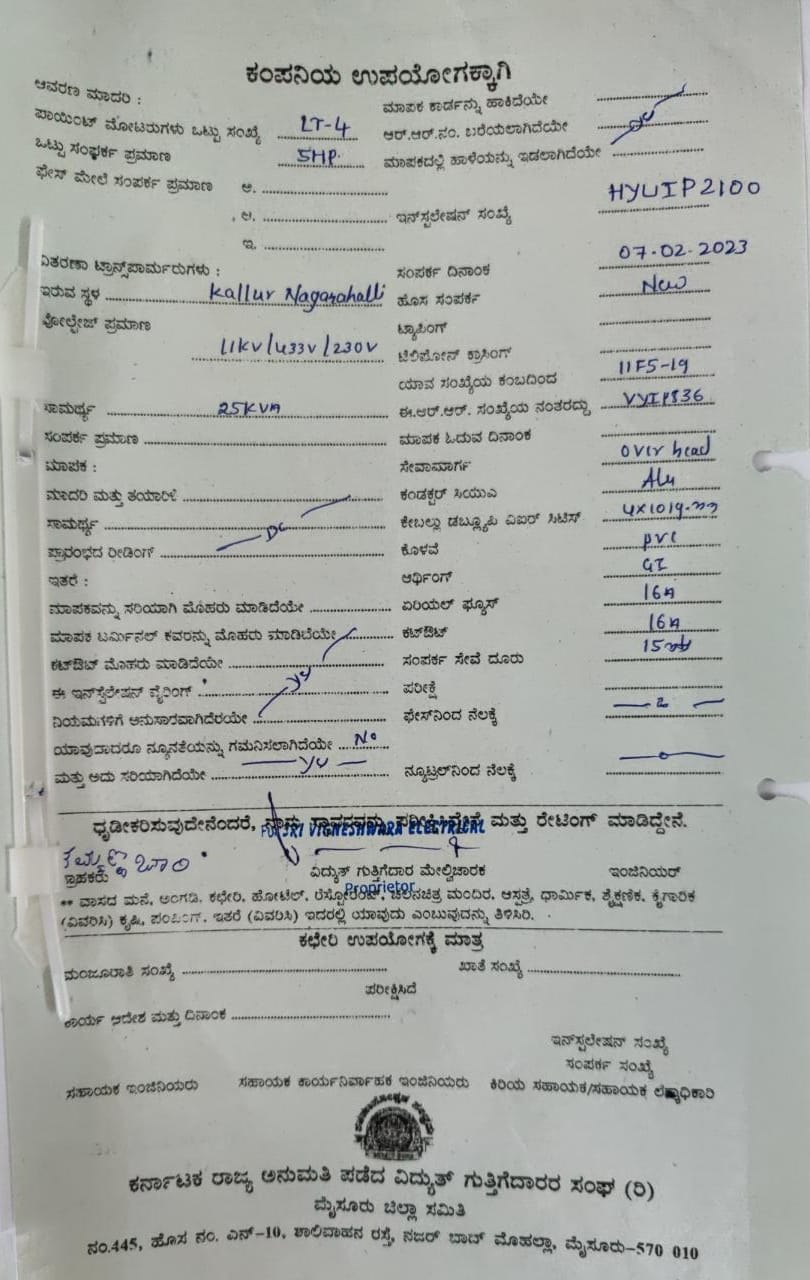 ಕಂಪನಿಯ ಉಪಯೋಗಕ್ಕಾಗಿ
ಆವರಣ ಮಾದರಿ :
ಮಾಪಕ ಕಾರ್ಡನ್ನು ಹಾಕಿದೆಯೇ
ಪಾಯಿಂಟ್ ಮೋಟರುಗಳು ಒಟ್ಟು ಸಂಖ್ಯೆ LT-4 ಆರ್.ಆರ್.ನಂ. ಬರೆಯಲಾಗಿದೆಯೇ
ಒಟ್ಟು ಸಂಪರ್ಕ ಪ್ರಮಾಣ 5HP. ಮಾಪಕದಲ್ಲಿ ಹಾಳೆಯನ್ನು ಇಡಲಾಗಿದೆಯೇ
ಫೇಸ್ ಮೇಲೆ ಸಂಪರ್ಕ ಪ್ರಮಾಣ ಅ.
ಆ. ಇನ್‌ಸ್ಟಲೇಷನ್ ಸಂಖ್ಯೆ HYUIP2100
ಇ.
ವಿತರಣಾ ಟ್ರಾನ್ಸ್‌ಪಾರ್ಮರುಗಳು : ಸಂಪರ್ಕ ದಿನಾಂಕ 07-02-2023
ಇರುವ ಸ್ಥಳ Kallur Nagarahalli ಹೊಸ ಸಂಪರ್ಕ New
ವೋಲ್ಟೇಜ್ ಪ್ರಮಾಣ 11KV/433V/230V ಟ್ಯಾಪಿಂಗ್
ಟೆಲಿಪೋನ್ ಕ್ರಾಸಿಂಗ್
ಯಾವ ಸಂಖ್ಯೆಯ ಕಂಬದಿಂದ 11F5-19
ಸಾಮರ್ಥ್ಯ 25KVA ಈ.ಆರ್.ಆರ್. ಸಂಖ್ಯೆಯ ನಂತರದ್ದು VYIP836
ಸಂಪರ್ಕ ಪ್ರಮಾಣ ಮಾಪಕ ಓದುವ ದಿನಾಂಕ
ಮಾಪಕ : ಸೇವಾಮಾರ್ಗ over head
ಮಾದರಿ ಮತ್ತು ತಯಾರಿಕೆ ಕಂಡಕ್ಟರ್ ಸಿಯುಎ Alu
ಸಾಮರ್ಥ್ಯ DC ಕೇಬಲ್ಲು ಡಬ್ಲ್ಯೂಪಿ ವಿಐರ್ ಸಿಟಿಸ್ 4X10
ಪ್ರಾರಂಭದ ರೀಡಿಂಗ್ ಕೊಳವೆ pvc
ಇತರೆ : ಆರ್ಥಿಂಗ್ GI
ಮಾಪಕವನ್ನು ಸರಿಯಾಗಿ ಮೊಹರು ಮಾಡಿದೆಯೇ ಏರಿಯಲ್ ಫ್ಯೂಸ್ 16A
ಮಾಪಕ ಟರ್ಮಿನಲ್ ಕವರನ್ನು ಮೊಹರು ಮಾಡಿದೆಯೇ ಕಟ್‌ಔಟ್ 16A
ಕಟ್‌ಔಟ್ ಮೊಹರು ಮಾಡಿದೆಯೇ ಸಂಪರ್ಕ ಸೇವೆ ದೂರು
ಈ ಇನ್‌ಸ್ಟೆಲೇಷನ್ ವೈರಿಂಗ್ ಪರೀಕ್ಷೆ
ನಿಯಮಗಳಿಗೆ ಅನುಸಾರವಾಗಿದೆರಯೇ ಫೇಸ್‌ನಿಂದ ನೆಲಕ್ಕೆ
ಯಾವುದಾದರೂ ನ್ಯೂನತೆಯನ್ನು ಗಮನಿಸಲಾಗಿದೆಯೇ No
ಮತ್ತು ಅದು ಸರಿಯಾಗಿದೆಯೇ ನ್ಯೂಟ್ರಲ್‌ನಿಂದ ನೆಲಕ್ಕೆ
ಧೃಡೀಕರಿಸುವುದೇನೆಂದರೆ, ನಾನು ಸ್ಥಾವರವನ್ನು ಪರೀಕ್ಷಿಸಿದ್ದೇನೆ ಮತ್ತು ರೇಟಿಂಗ್ ಮಾಡಿದ್ದೇನೆ.
FOR SRI VIGNESHWARA ELECTRICAL
ಗ್ರಾಹಕರು ವಿದ್ಯುತ್ ಗುತ್ತಿಗೆದಾರ ಮೇಲ್ವಿಚಾರಕ ಇಂಜಿನಿಯರ್
Proprietor
** ವಾಸದ ಮನೆ, ಅಂಗಡಿ, ಕಛೇರಿ, ಹೋಟೆಲ್, ರೆಸ್ಟೋರೆಂಟ್, ಚಲನಚಿತ್ರ ಮಂದಿರ, ಆಸ್ಪತ್ರೆ, ಧಾರ್ಮಿಕ, ಶೈಕ್ಷಣಿಕ, ಕೈಗಾರಿಕ
(ವಿವರಿಸಿ) ಕೃಷಿ, ಪಂಪಿಂಗ್, ಇತರೆ (ವಿವರಿಸಿ) ಇದರಲ್ಲಿ ಯಾವುದು ಎಂಬುವುದನ್ನು ತಿಳಿಸಿರಿ.
ಕಛೇರಿ ಉಪಯೋಗಕ್ಕೆ ಮಾತ್ರ
ಮಂಜೂರಾತಿ ಸಂಖ್ಯೆ ಖಾತೆ ಸಂಖ್ಯೆ
ಪರೀಕ್ಷಿಸಿದೆ
ಕಾರ್ಯ ಆದೇಶ ಮತ್ತು ದಿನಾಂಕ
ಇನ್‌ಸ್ಟಲೇಷನ್ ಸಂಖ್ಯೆ
ಸಂಪರ್ಕ ಸಂಖ್ಯೆ
ಸಹಾಯಕ ಇಂಜಿನಿಯರು ಸಹಾಯಕ ಕಾರ್ಯನಿರ್ವಾಹಕ ಇಂಜಿನಿಯರು ಕಿರಿಯ ಸಹಾಯಕ/ಸಹಾಯಕ ಲೆಕ್ಕಾಧಿಕಾರಿ
ಕರ್ನಾಟಕ ರಾಜ್ಯ ಅನುಮತಿ ಪಡೆದ ವಿದ್ಯುತ್ ಗುತ್ತಿಗೆದಾರರ ಸಂಘ (ರಿ)
ಮೈಸೂರು ಜಿಲ್ಲಾ ಸಮಿತಿ
ನಂ.445, ಹೊಸ ನಂ. ಎನ್-10, ಶಾಲಿವಾಹನ ರಸ್ತೆ, ನಜರ್ ಬಾದ್ ಮೊಹಲ್ಲಾ, ಮೈಸೂರು-570 010